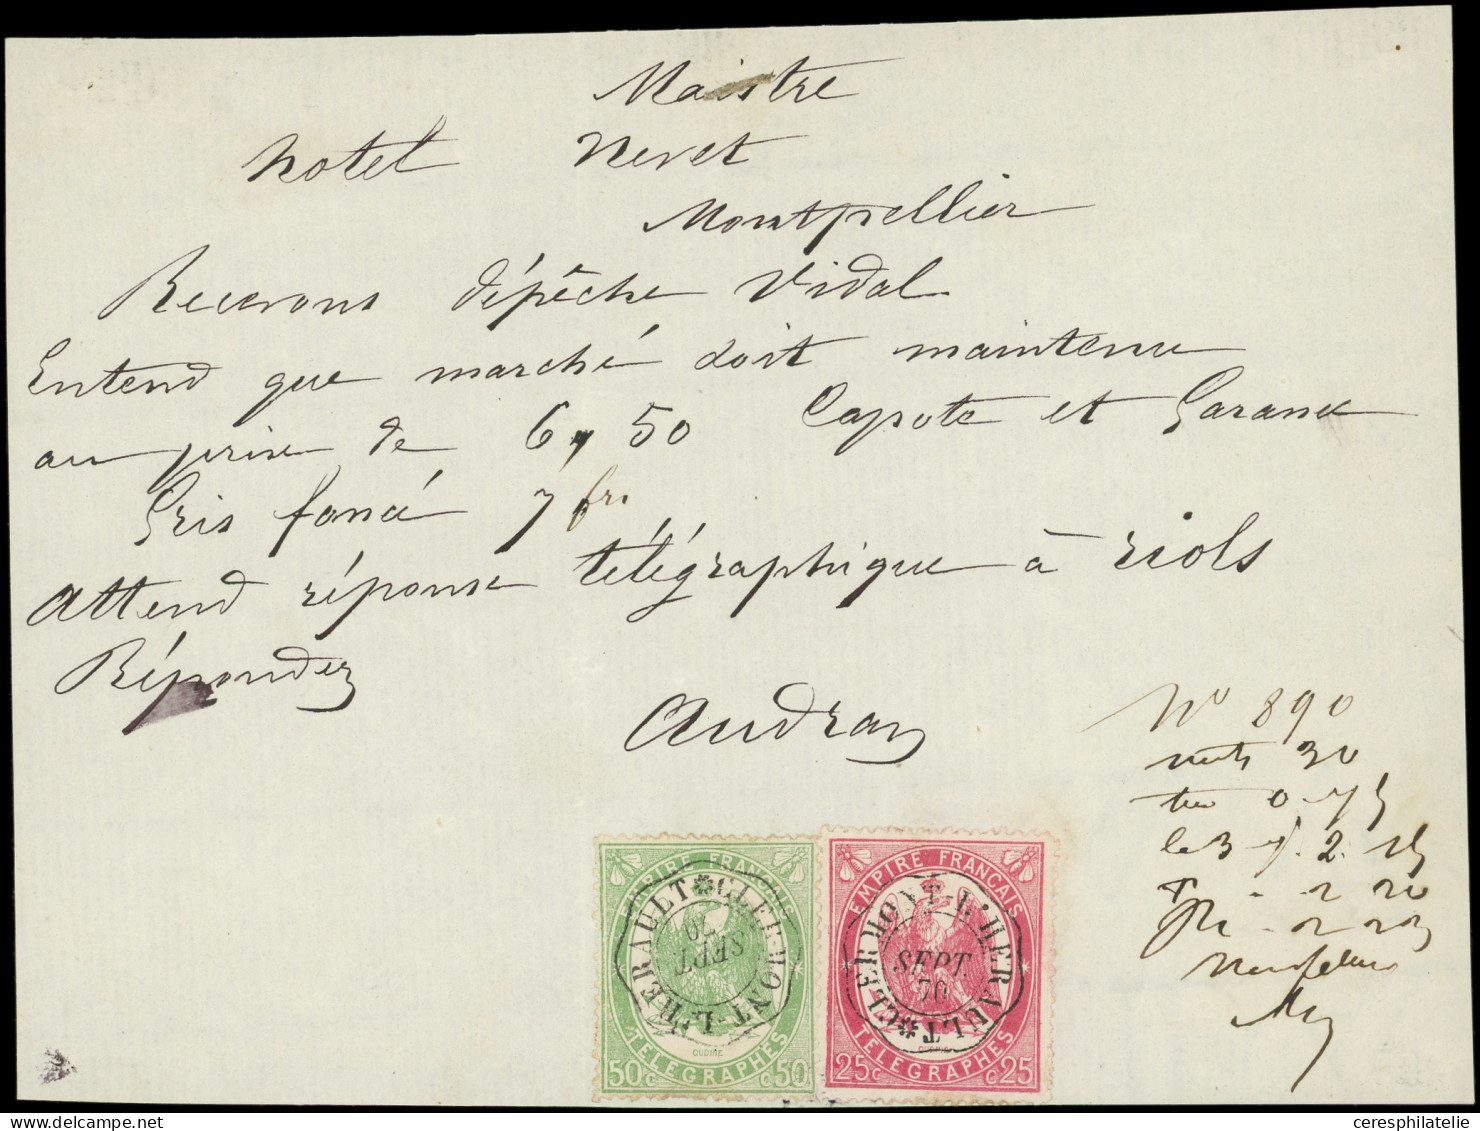 Maistre
hotel Nevet
Montpellier
Recevons dépêche Vidal
Entend que marché doit maintenu
au prix de 6,50 Capote et Garance
Gris foncé 7 fr.
Attend réponse télégraphique à riols
Répondez
Audran
No 890
mots 30
0.75
le 3 2. 15
2 20
2 20
Montpellier
EMPIRE FRANÇAIS
CLERMONT-L'HERAULT
SEPT
70
TELEGRAPHES
OUDINE
50c c50
EMPIRE FRANÇAIS
CLERMONT-L'HERAULT
SEPT
70
TELEGRAPHES
OUDINE
25c c25
ceresphilatelie.com